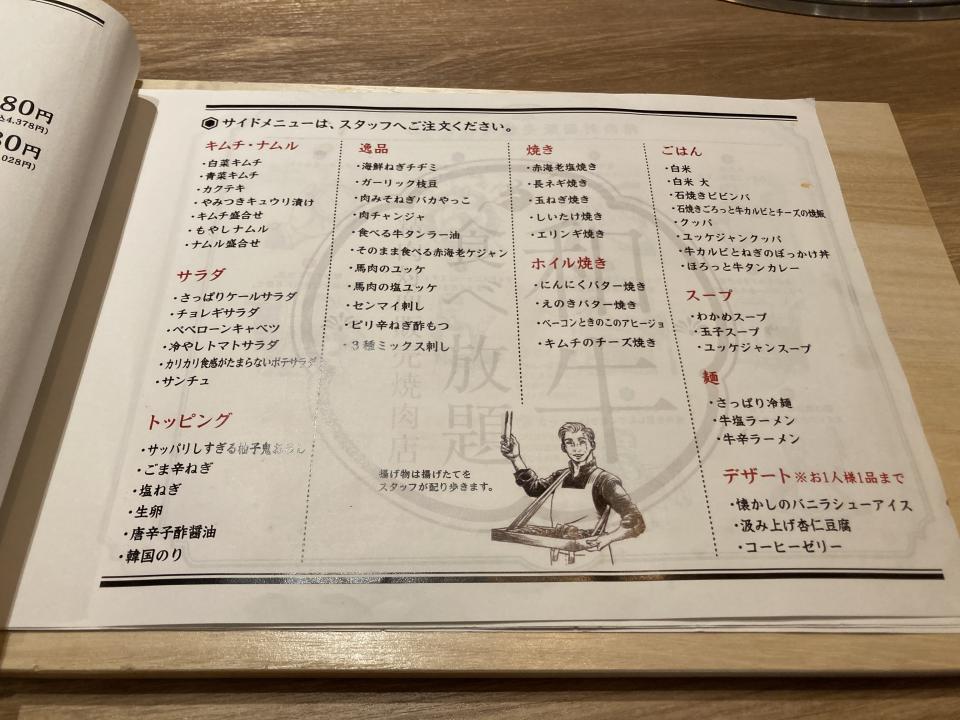 80円
4,378円)
80円
028円)
サイドメニューは、スタッフへご注文ください。
キムチ・ナムル
・白菜キムチ
・青菜キムチ
・カクテキ
・やみつきキュウリ漬け
・キムチ盛合せ
・もやしナムル
・ナムル盛合せ
サラダ
・さっぱりケールサラダ
・チョレギサラダ
・ペペローンキャベツ
・冷やしトマトサラダ
・カリカリ食感がたまらないポテサラダ
・サンチュ
トッピング
・サッパリしすぎる柚子鬼おろし
・ごま辛ねぎ
・塩ねぎ
・生卵
・唐辛子酢醤油
・韓国のり
逸品
・海鮮ねぎチヂミ
・ガーリック枝豆
・肉みそねぎバカやっこ
・肉チャンジャ
・食べる牛タンラー油
・そのまま食べる赤海老ケジャン
・馬肉のユッケ
・馬肉の塩ユッケ
・センマイ刺し
・ピリ辛ねぎ酢もつ
・3種ミックス刺し
焼き
・赤海老塩焼き
・長ネギ焼き
・玉ねぎ焼き
・しいたけ焼き
・エリンギ焼き
ホイル焼き
・にんにくバター焼き
・えのきバター焼き
・ベーコンときのこのアヒージョ
・キムチのチーズ焼き
揚げ物は揚げたてを
スタッフが配り歩きます。
ごはん
・白米
・白米 大
・石焼きビビンバ
・石焼きごろっと牛カルビとチーズの焼飯
・クッパ
・ユッケジャンクッパ
・牛カルビとねぎのぶっかけ丼
・ほろっと牛タンカレー
スープ
・わかめスープ
・玉子スープ
・ユッケジャンスープ
麺
・さっぱり冷麺
・牛塩ラーメン
・牛辛ラーメン
デザート ※お1人様1品まで
・懐かしのバニラシューアイス
・汲み上げ杏仁豆腐
・コーヒーゼリー
和牛
食べ放題
焼肉店